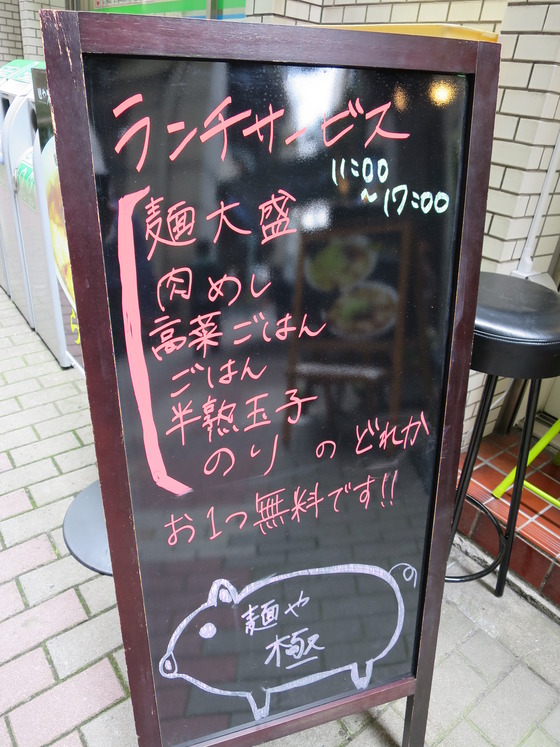 ランチサービス
11:00
～17:00
麺大盛
肉めし
高菜ごはん
ごはん
半熟玉子
のり のどれか
お1つ無料です!!
麺や
極